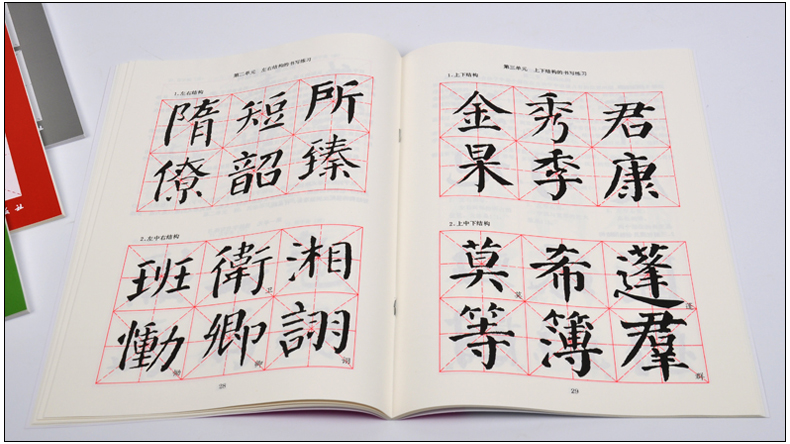 第二单元 左右结构的书写练习
1.左右结构
隋 短 所
僚 韶 臻
2.左中右结构
班 衛 湘
卫
慟 卿 詡
恸 卿
28
第三单元 上下结构的书写练习
1.上下结构
金 秀 君
果 季 康
2.上中下结构
莫 希 蓬
莫 蓬
等 簿 羣
群
29